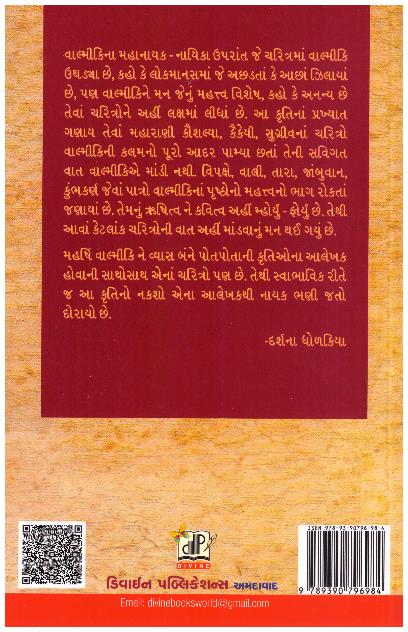 વાલ્મીકિના મહાનાયક - નાયિકા ઉપરાંત જે ચરિત્રમાં વાલ્મીકિ
ઉઘડ્યા છે, કહો કે લોકમાનસમાં જે અછડતાં કે આછાં ઝિલાયાં
છે, પણ વાલ્મીકિને મન જેનું મહત્ત્વ વિશેષ, કહો કે અનન્ય છે
તેવાં ચરિત્રોને અહીં લક્ષમાં લીધાં છે. આ કૃતિનાં પ્રખ્યાત
ગણાય તેવાં મહારાણી કૌશલ્યા, કૈકેયી, સુગ્રીવનાં ચરિત્રો
વાલ્મીકિની કલમનો પૂરો આદર પામ્યા છતાં તેની સવિગત
વાત વાલ્મીકિએ માંડી નથી. વિપક્ષે, વાલી, તારા, જાંબુવાન,
કુંભકર્ણ જેવાં પાત્રો વાલ્મીકિનાં પૃષ્ઠોનો મહત્ત્વનો ભાગ રોકતાં
જણાયાં છે. તેમનું ઋષિત્વ ને કવિત્વ અહીં મ્હોર્યું - ફોર્યું છે. તેથી
આવાં કેટલાંક ચરિત્રોની વાત અહીં માંડવાનું મન થઈ ગયું છે.
મહર્ષિ વાલ્મીકિ ને વ્યાસ બંને પોતપોતાની કૃતિઓના આલેખક
હોવાની સાથોસાથ એનાં ચરિત્રો પણ છે. તેથી સ્વાભાવિક રીતે
જ આ કૃતિનો નકશો એના આલેખકથી નાયક ભણી જતો
દોરાયો છે.
-દર્શના ધોળકિયા
DIVINE
ડિવાઈન પબ્લિકેશન્સ અમદાવાદ
Email: divinebooksworld@gmail.com
ISBN 978-93-90796-98-4
9 789390 796984